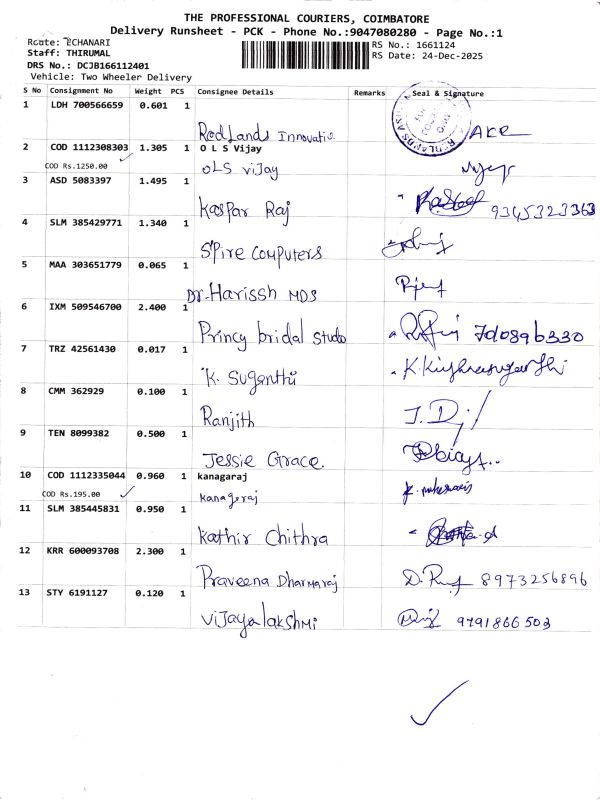 THE PROFESSIONAL COURIERS, COIMBATORE
Delivery Runsheet - PCK - Phone No.:9047080280 - Page No.:1
Route: ECHANARI
RS No.: 1661124
Staff: THIRUMAL
RS Date: 24-Dec-2025
DRS No.: DCJB166112401
Vehicle: Two Wheeler Delivery
S No Consignment No Weight PCS Consignee Details Remarks Seal & Signature
1 LDH 700566659 0.601 1
RedLands Innovatis
2 COD 1112308303 1.305 1 O L S Vijay
COD Rs.1250.00 OLS Vijay
3 ASD 5083397 1.495 1
Kaspar Raj 9345323363
4 SLM 385429771 1.340 1
Spire Computers
5 MAA 303651779 0.065 1
Dr. Harissh MDS
6 IXM 509546700 2.400 1
Princy bridal studo
7 TRZ 42561430 0.017 1
K. Suganthi
8 CMM 362929 0.100 1
Ranjith
9 TEN 8099382 0.500 1
Jessie Grace.
10 COD 1112335044 0.960 1 kanagaraj
COD Rs.195.00 kanagaraj
11 SLM 385445831 0.950 1
Kathir Chithra
12 KRR 600093708 2.300 1
Praveena Dharmaraj 8973256896
13 STY 6191127 0.120 1
Vijayalakshmi 9791866503